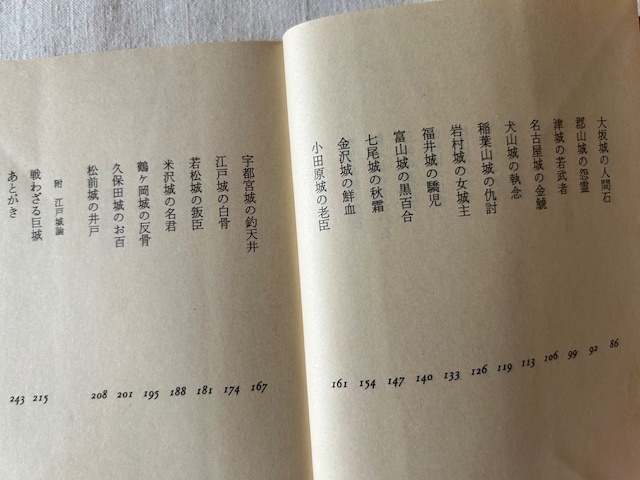 大坂城の人間石 86
郡山城の怨霊 92
津城の若武者 99
名古屋城の金鯱 106
犬山城の執念 113
稲葉山城の仇討 119
岩村城の女城主 126
福井城の驕児 133
富山城の黒百合 140
七尾城の秋霜 147
金沢城の鮮血 154
小田原城の老臣 161
宇都宮城の釣天井 167
江戸城の白骨 174
若松城の叛臣 181
米沢城の名君 188
鶴ヶ岡城の反骨 195
久保田城のお百 201
松前城の井戸 208
附 江戸城論
戦わざる巨城 215
あとがき 243